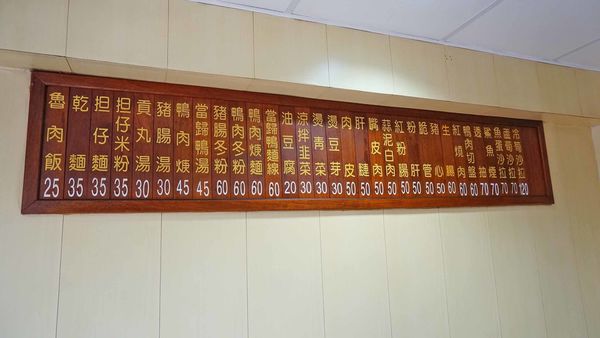 魯肉飯 25
乾麵 35
担仔麵 35
担仔米粉 35
貢丸湯 30
豬腸湯 30
鴨肉焿 45
當歸鴨湯 45
豬腸冬粉 60
鴨肉冬粉 60
鴨肉焿麵 60
當歸鴨麵線 60
油豆腐 20
涼拌韭菜 30
燙青菜 30
燙豆芽 30
肉皮 50
肝腱 50
嘴皮肉 50
蒜泥白肉 50
紅粉腸 50
粉肝 50
脆管 50
豬心 50
生腸 60
紅燒肉 60
鴨肉切盤 60
透抽 70
鯊魚煙 70
魚蛋沙拉 70
蘆筍沙拉 70
冷筍沙拉 120